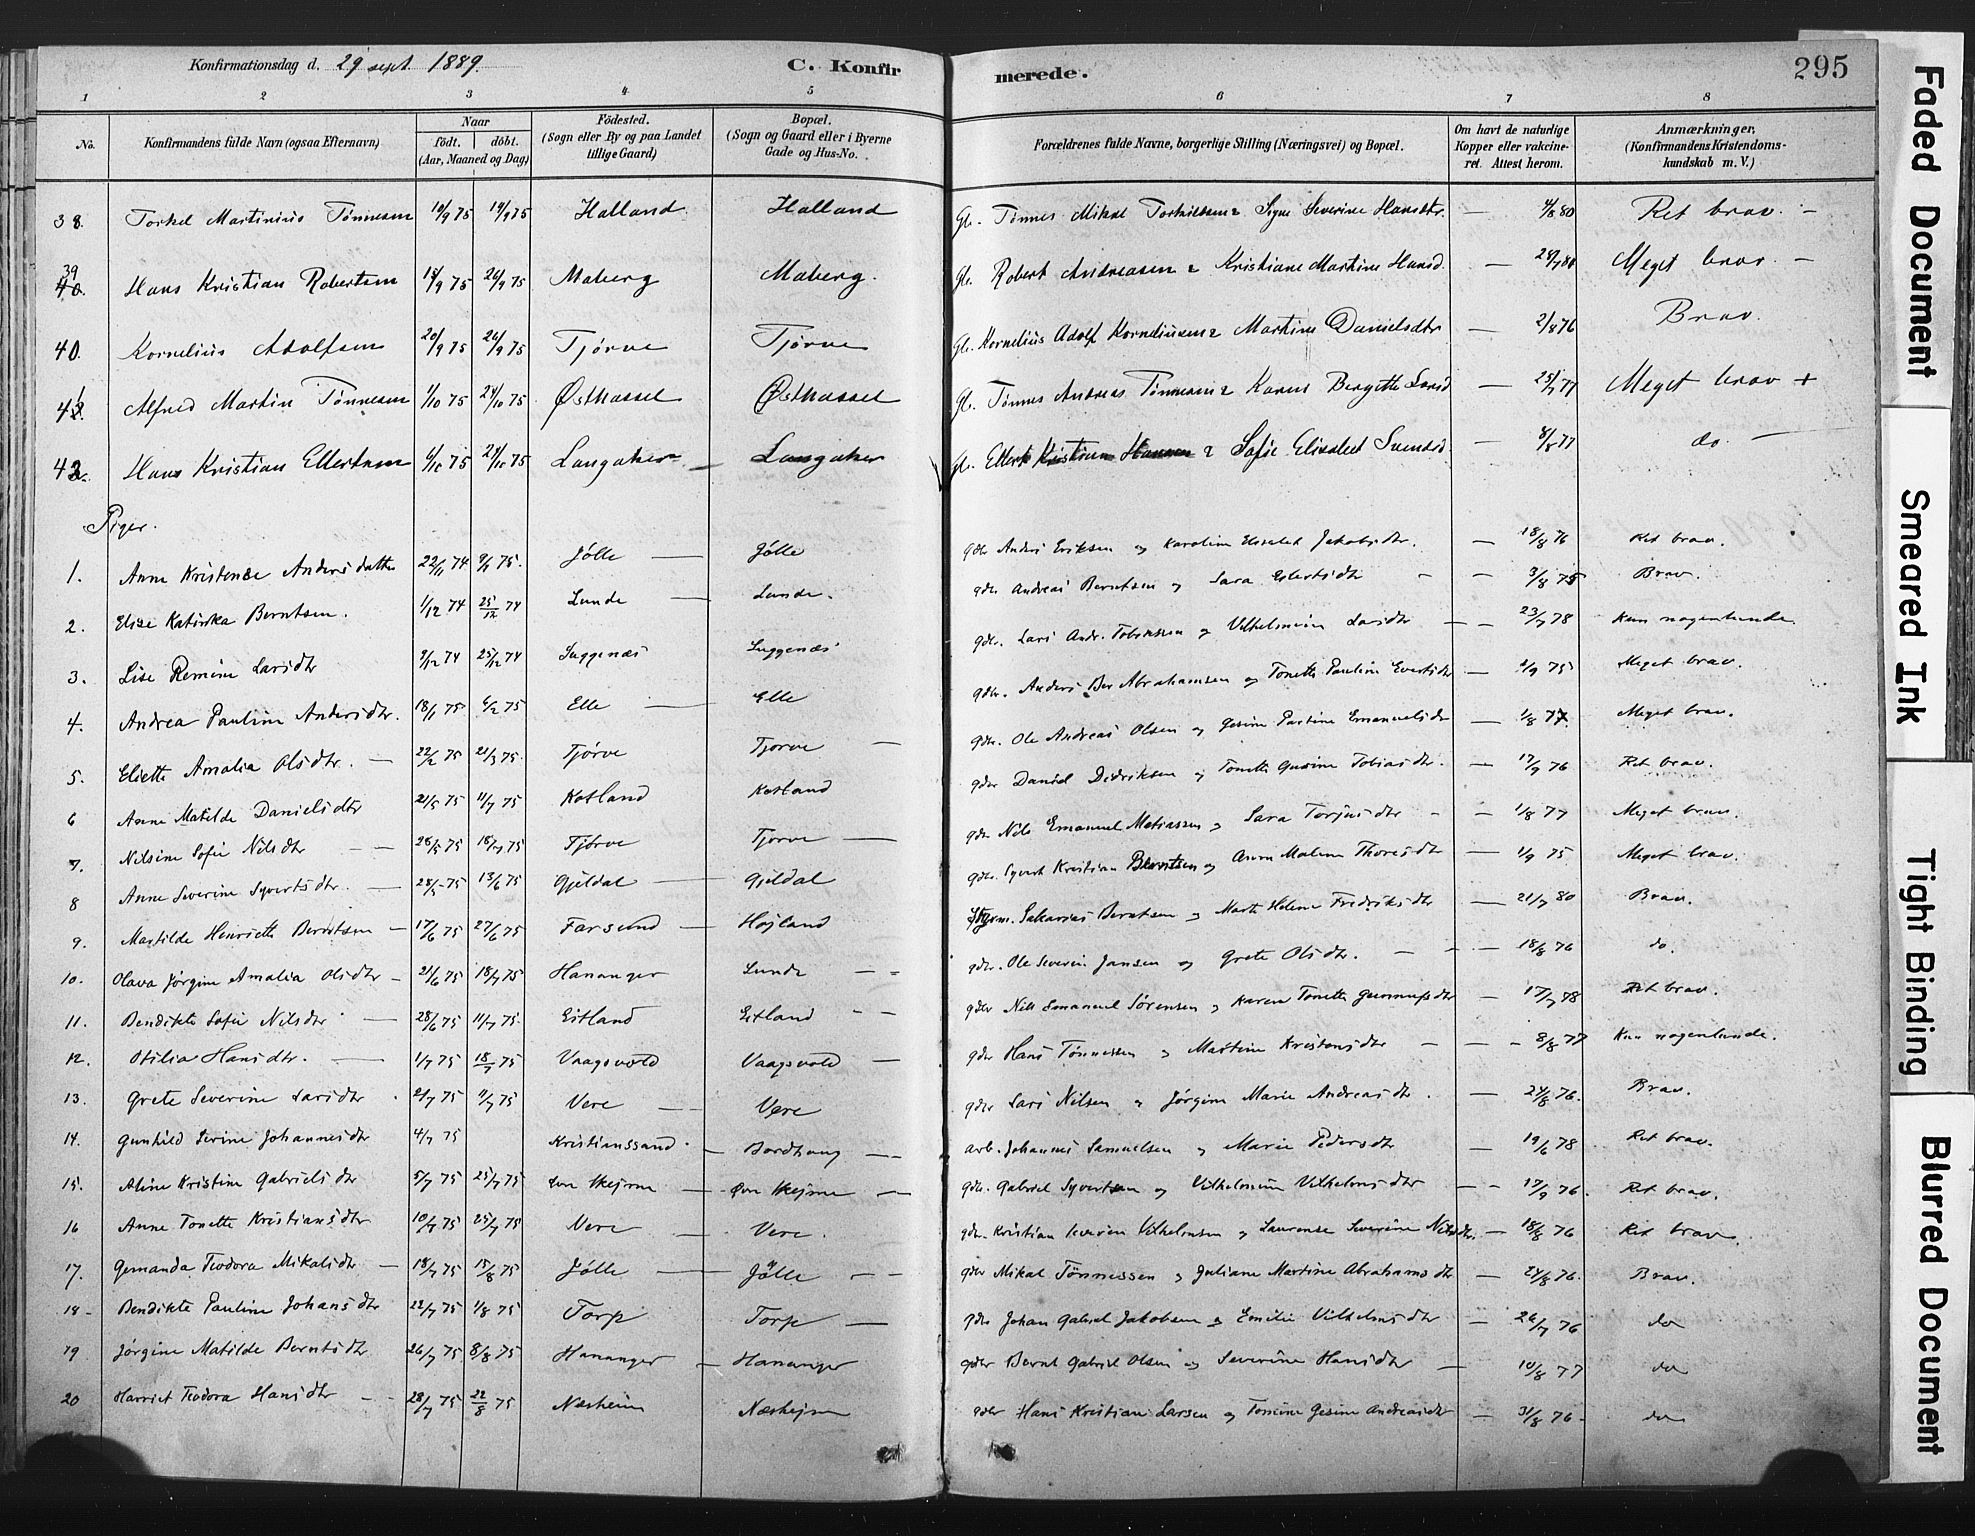 Konfirmationsdag d. 29 sept. 1889. C. Konfirmerede. 295
1 2 3 4 5 6 7 8
No. Konfirmandens fulde Navn (ogsaa Efternavn) Naar født. døbt. (Aar, Maaned og Dag) Fødested. (Sogn eller By og paa Landet tillige Gaard) Bopæl. (Sogn og Gaard eller i Byerne Gade og Hus-No. Forældrenes fulde Navne, borgerlige Stilling (Næringsvei) og Bopæl. Om havt de naturlige Kopper eller vakcineret. Attest herom. Anmærkninger, (Konfirmandens Kristendomskundskab m. V.)
38. Torkel Martinius Tønnesen 10/9 75 19/9 75 Halland Halland Tønnes Mikal Signe Severine Hansdtr. — 4/8 80 Ret brav. —
39 Hans Kristian Robertsen 26/9 75 Maberg Maberg. Robert Andreasen & Kristiane Martine Hansd. — Meget brav. —
40. Kornelius Adolfsen 20/9 75 26/9 75 Tjørve Tjørve Kornelius Adolf Korneliusen & Martine Danielsdtr — 2/8 76 Brav.
41 Alfred Martin Tønnesen 1/10 75 24/10 75 Østhassel Østhassel Tønnes Andreas Tønnesen & Karen Bergitte Larsd — 25/7 77 Meget brav +
42. Hans Kristian Ellertsen 6/10 75 24/10 75 Langaker Langaker Ellert Kristian Hansen & Sofie Elisabet Svensd. — 8/8 77 do. —
Piger.
1. Anne Kristense Andersdatter 22/11 74 75. Jølle — Jølle gdbr Anders Eriksen og Karoline Elisabet Jakobsdtr. — 18/8 76 Ret brav.
2. Elise Katinka Berntsen. 1/12 74 25/12 74 Lunde — Lunde. gdbr Andreas Berntsen og Sara Eilertsdtr — 3/8 75 Brav.
3. Lise Remine Larsdtr 9/12 74 25/12 74 Luggenæs Luggenæs gdbr. Lars Andr. Tobiassen og Vilhelmine Larsdtr — 23/7 78 Kun nogenlunde
4. Andrea Pauline Andersdtr. 18/1 75 6/2 75 Elle — Elle gdbr. Anders Ber Abrahamsen og Tonette Pauline Evertsdtr — 2/9 75 Meget brav.
5. Eliette Amalia Olsdtr. — 22/2 75 21/3 75. Tjørve Tjorve — gdbr. Ole Andreas Olsen og Gesine Partine Emanuelsdtr — 1/8 77 Meget brav.
6 Anne Matilde Danielsdtr 21/5 75 11/7 75 Kotland Kotland gdbr Daniel Didriksen og Tonette Gurine Tobiasdtr. — 17/9 76 Ret brav.
7. Nilsine Sofie Nilsdtr — 18/7 75 Tjørve Tjorve — gdbr Nils Emanuel Matiassen og Sara Torjusdtr — 1/8 77 Meget brav.
8 Anne Severine Syvertsdtr. — 13/6 75 Gjeldal — Gjeldal gdbr. Syvert Kristian Berntsen og Anna Malene Thoresdtr — 1/9 75 Meget brav.
9. Martilde Henriette Berntsen — 17/6 75 27/6 75 Farsund — Højland Styrm. Sakarias Berntsen og Marte Helene Fredriksdtr — 21/7 80 Brav.
10. Olava Jørgine Amalia Olsdtr — 21/6 75 18/7 75 Hananger Lunde — gdbr. Ole Severin Jansen og Grete Olsdtr. — 18/8 76 do.
11. Bendikte Sofie Nilsdtr — 28/6 75 11/7 75. Eitland Eitland — gdbr Nils Emanuel Sørensen og Karen Tonette Gunnufsdtr — 17/7 78 Ret brav.
12. Otilia Hansdtr. — 1/7 75 18/7 75 Vaagsvold Vaagsvold — gdbr Hans Tønnessen og Martine Kristensdtr — 8/8 77 Kun nogenlunde.
13. Grete Severine Larsdtr 2/7 75 11/7 75 Vere — Vere gdbr Lars Nilsen og Jørgine Marie Andreasdtr. — 24/8 76. Brav.
14. Gunhild Serine Johannesdtr 4/7 75 Kristianssand — Bordhaug — arb. Johannes Samuelsen og Marie Pedersdtr — 19/6 78 Ret brav.
15. Aline Kristine Gabrielsdtr 5/7 75 25/7 75 — gdbr. Gabriel Syvertsen og Vilhelmine Vilhelmsdtr — 17/9 76. Ret brav.
16 Anne Tonette Kristiansdtr 10/7 75 25/7 75 Vere — Vere. gdbr. Kristian Severin Vilhelmsen og Laurense Severine Nilsdtr. — 18/8 76 Ret brav.
17. Gemanda Teodora Mikalsdtr — 18/7 75 15/8 75 Jølle — Jølle — gdbr Mikal Tønnessen og Juliane Martine Abrahamsdtr — 24/8 76. Brav.
18 - Bendikte Pauline Johansdtr 22/7 75 1/8 75 Torp Torp — gdbr Johan Gabriel Jakobsen og Emilie Vilhelmsdtr — 26/7 76 do
19 Jørgine Matilde Berntsdtr 26/7 75 8/8 75 Hananger — Hananger gdbr Bernt Gabriel Olsen og Severine Hansdtr — 10/8 77 do
20 Harriet Teodora Hansdtr — 28/7 75 22/8 75 Næsheim Næshejm gdbr Hans Kristian Larsen og Tomine Gesine Andreasdtr — 31/8 76 - do
Faded Document
Smeared Ink
Tight Binding
Blurred Document